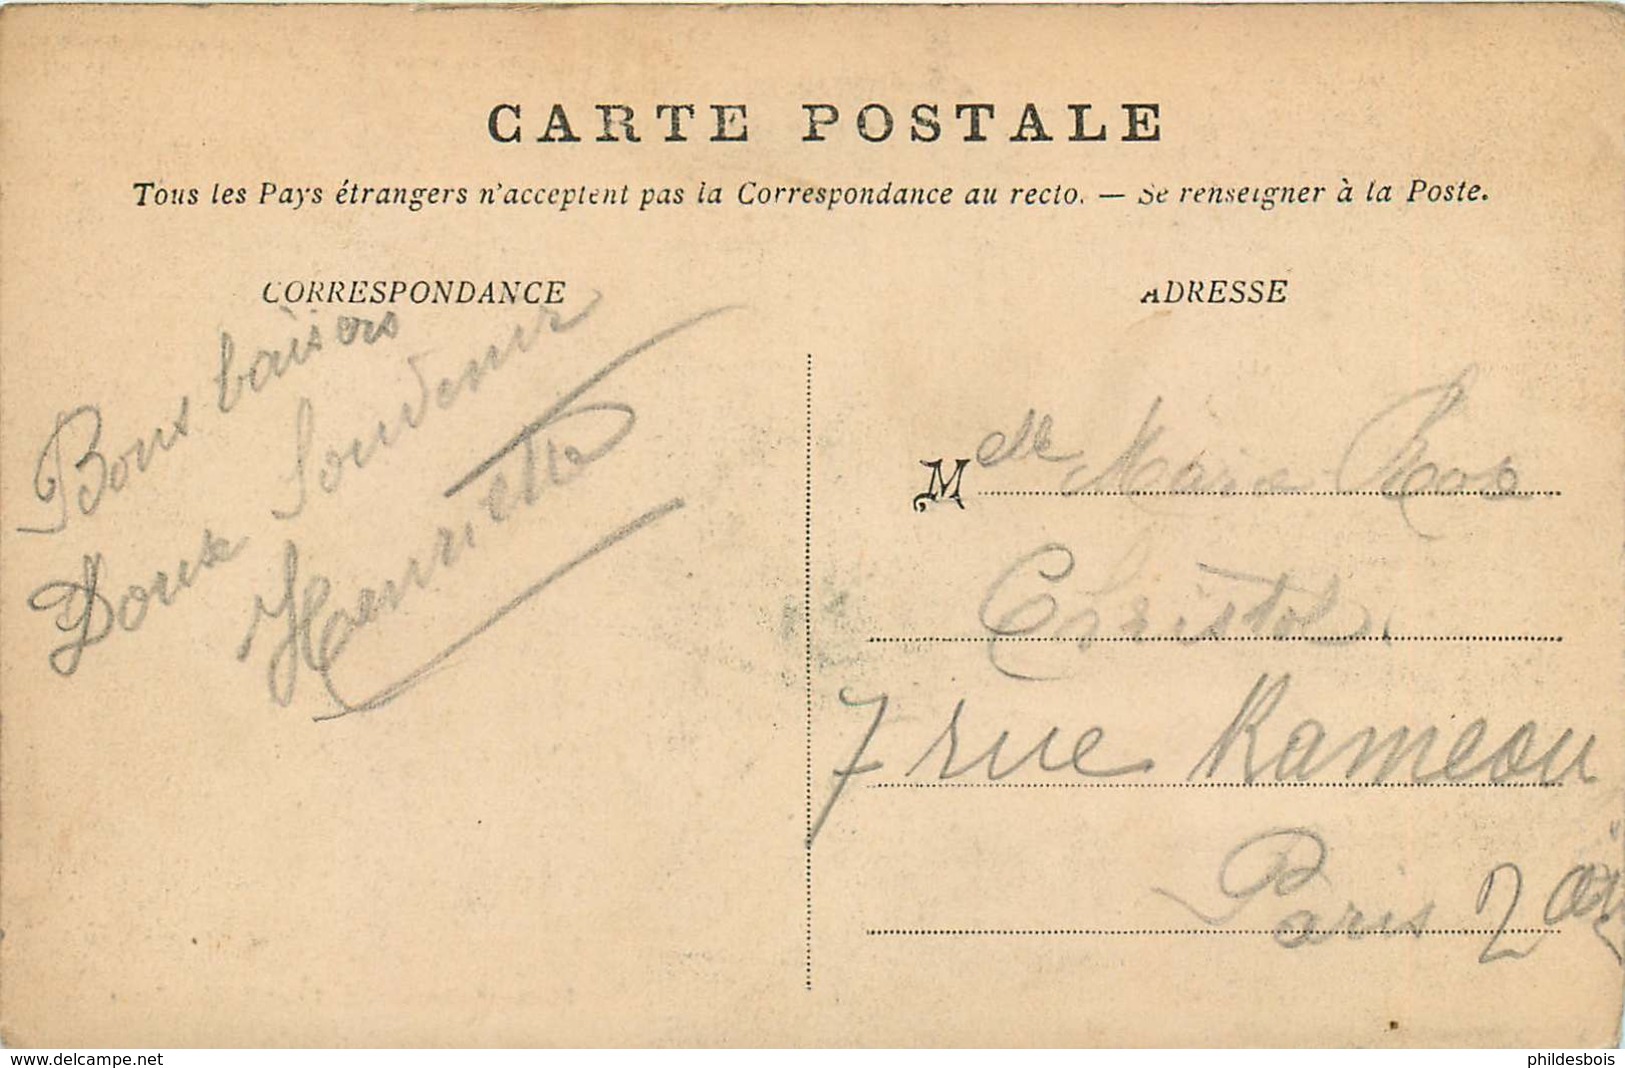 CARTE POSTALE
Tous les Pays étrangers n'acceptent pas la Correspondance au recto. — Se renseigner à la Poste.
CORRESPONDANCE
Bons baisers
Doux Souvenir
Henriette
ADRESSE
Melle Marie
Christol
7 rue Rameau
Paris 2
www.delcampe.net
phildesbois